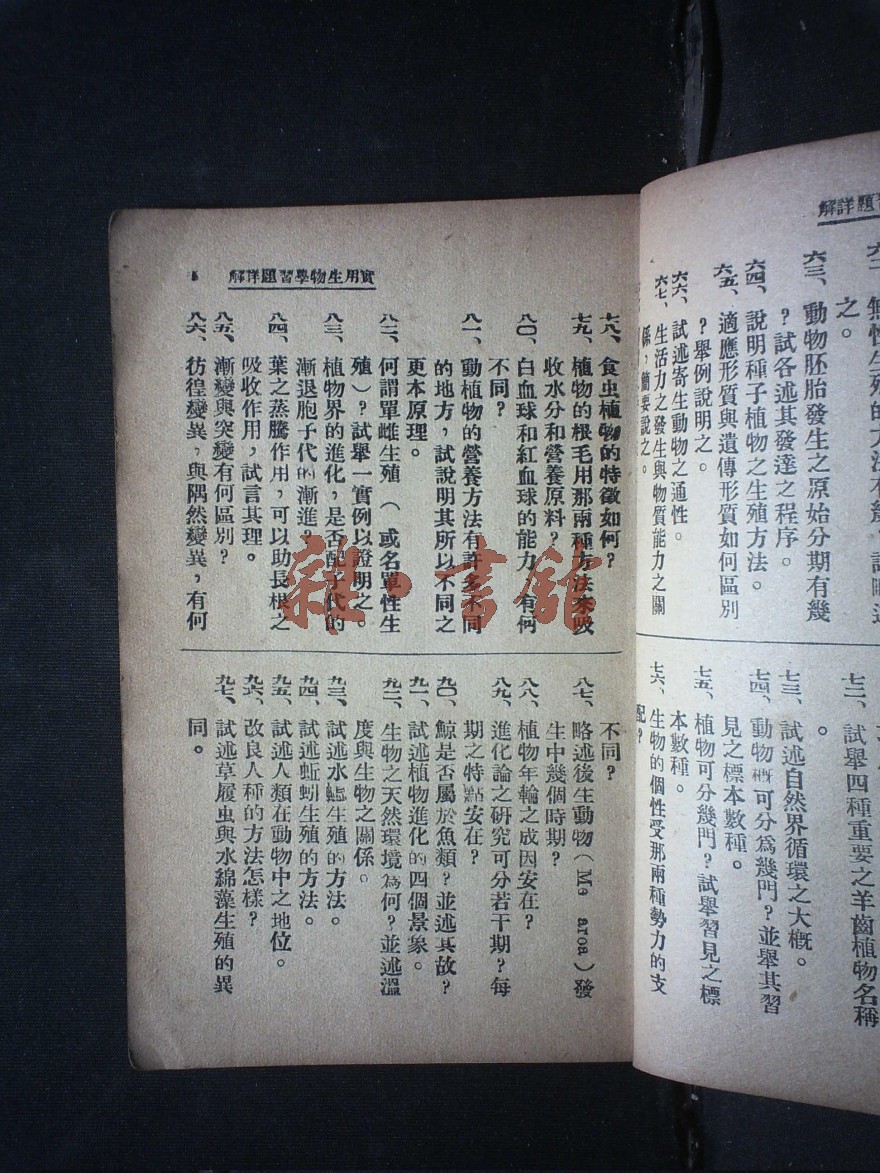 解詳題
六三、動物胚胎發生之原始分期有幾
？試各述其發達之程序。
六四、說明種子植物之生殖方法。
六五、適應形質與遺傳形質如何區別
？舉例說明之。
六六、試述寄生動物之通性。
六七、生活力之發生與物質能力之關
係，簡要說之。
七三、試舉四種重要之羊齒植物名稱
。
七三、試述自然界循環之大概。
七四、動物概可分爲幾門？並舉其習
見之標本數種。
七五、植物可分幾門？試舉習見之標
本數種。
七六、生物的個性受那兩種勢力的支
配？
解詳題習學物生用實
七八、食虫植物的特徵如何？
七九、植物的根毛用那兩種方法來吸
收水分和營養原料？
八〇、白血球和紅血球的能力，有何
不同？
八一、動植物的營養方法有許多不同
的地方，試說明其所以不同之
更本原理。
八二、何謂單雌生殖（或名單性生
殖）？試舉一實例以證明之。
八三、植物界的進化，是否配子代的
漸退胞子代的漸進？
八四、葉之蒸騰作用，可以助長根之
吸收作用，試言其理。
八五、漸變與突變有何區別？
八六、彷徨變異，與隅然變異，有何
不同？
八七、略述後生動物（Me aroa）發
生中幾個時期？
八八、植物年輪之成因安在？
八九、進化論之研究可分若干期？每
期之特點安在？
九〇、鯨是否屬於魚類？並述其故？
九一、試述植物進化的四個景象。
九二、生物之天然環境為何？並述溫
度與生物之關係。
九三、試述水螅生殖的方法。
九四、試述蚯蚓生殖的方法。
九五、試述人類在動物中之地位。
九六、改良人種的方法怎樣？
九七、試述草履虫與水綿藻生殖的異
同。
雜·書舘